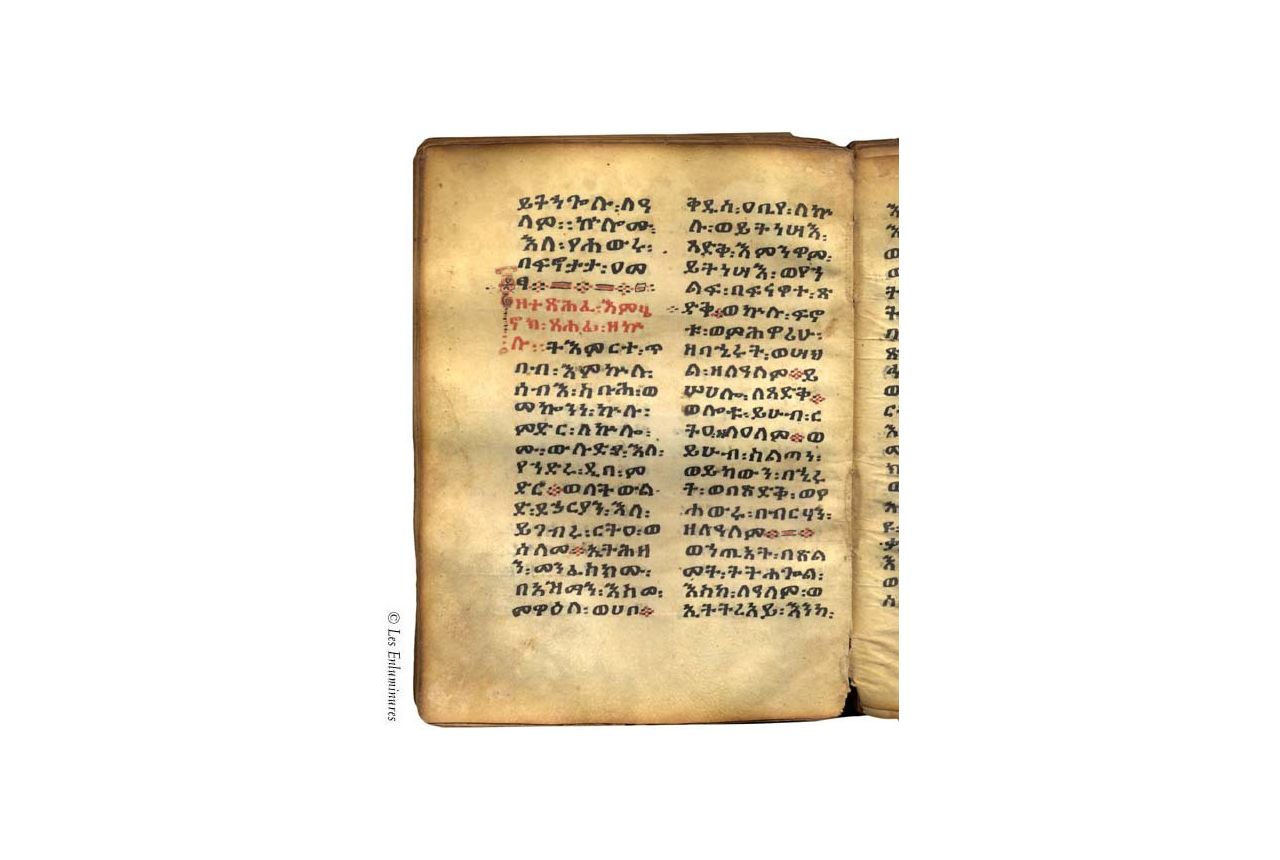 ይትኀጐሉ፡ለዓ
ለም፡፡ኵሎሙ፡
እለ፡የሐውሩ፡
በፍኖታት፡ዐመ
ፃ
ዘተጽሕፈ፡እምሄ
ኖክ፡ጸሐፊ፡ዘኵ
ሉ፡፡ትእምርተ፡ጥ
በብ፡እምኵሉ፡
ሰብእ፡ስቡሕ፡ወ
መኰንነ፡ኵሉ፡
ምድር፡ለኵሎ
ሙ፡ውሉድየ፡እለ፡
የኀድሩ፡ዲበ፡ም
ድር፡ወለትውል
ድ፡ደኃርያን፡እለ፡
ይገብሩ፡ርትዐ፡ወ
ሰላመ፡ኢትሕዘ
ን፡መንፈስክሙ፡
በአዝማን፡እስመ፡
መዋዕለ፡ወሀበ
ቅዱስ፡ዐቢየ፡ለኵ
ሉ፡ወይትነሣእ፡
ጻድቅ፡እምንዋም፡
ይትነሣእ፡ወየኀ
ልፍ፡በፍናዋተ፡ጽ
ድቅ፡ወኵሉ፡ፍኖ
ቱ፡ወምሕዋሪሁ፡
ዘበኂሩት፡ወሣህ
ል፡ዘለዓለም፡ይ
ሣሀሎ፡ለጻድቅ
ወሎቱ፡ይሁብ፡ር
ትዐ፡ለዓለም፡ወ
ይሁብ፡ስልጣነ፡
ወይከውን፡በኂሩ
ት፡ወበጽድቅ፡ወየ
ሐውሩ፡በብርሃን፡
ዘለዓለም
ወኀጢአት፡በጽል
መት፡ትትሐጐል፡
እስከ፡ለዓለም፡ወ
ኢትትረአይ፡እንከ፡
© Les Enluminures